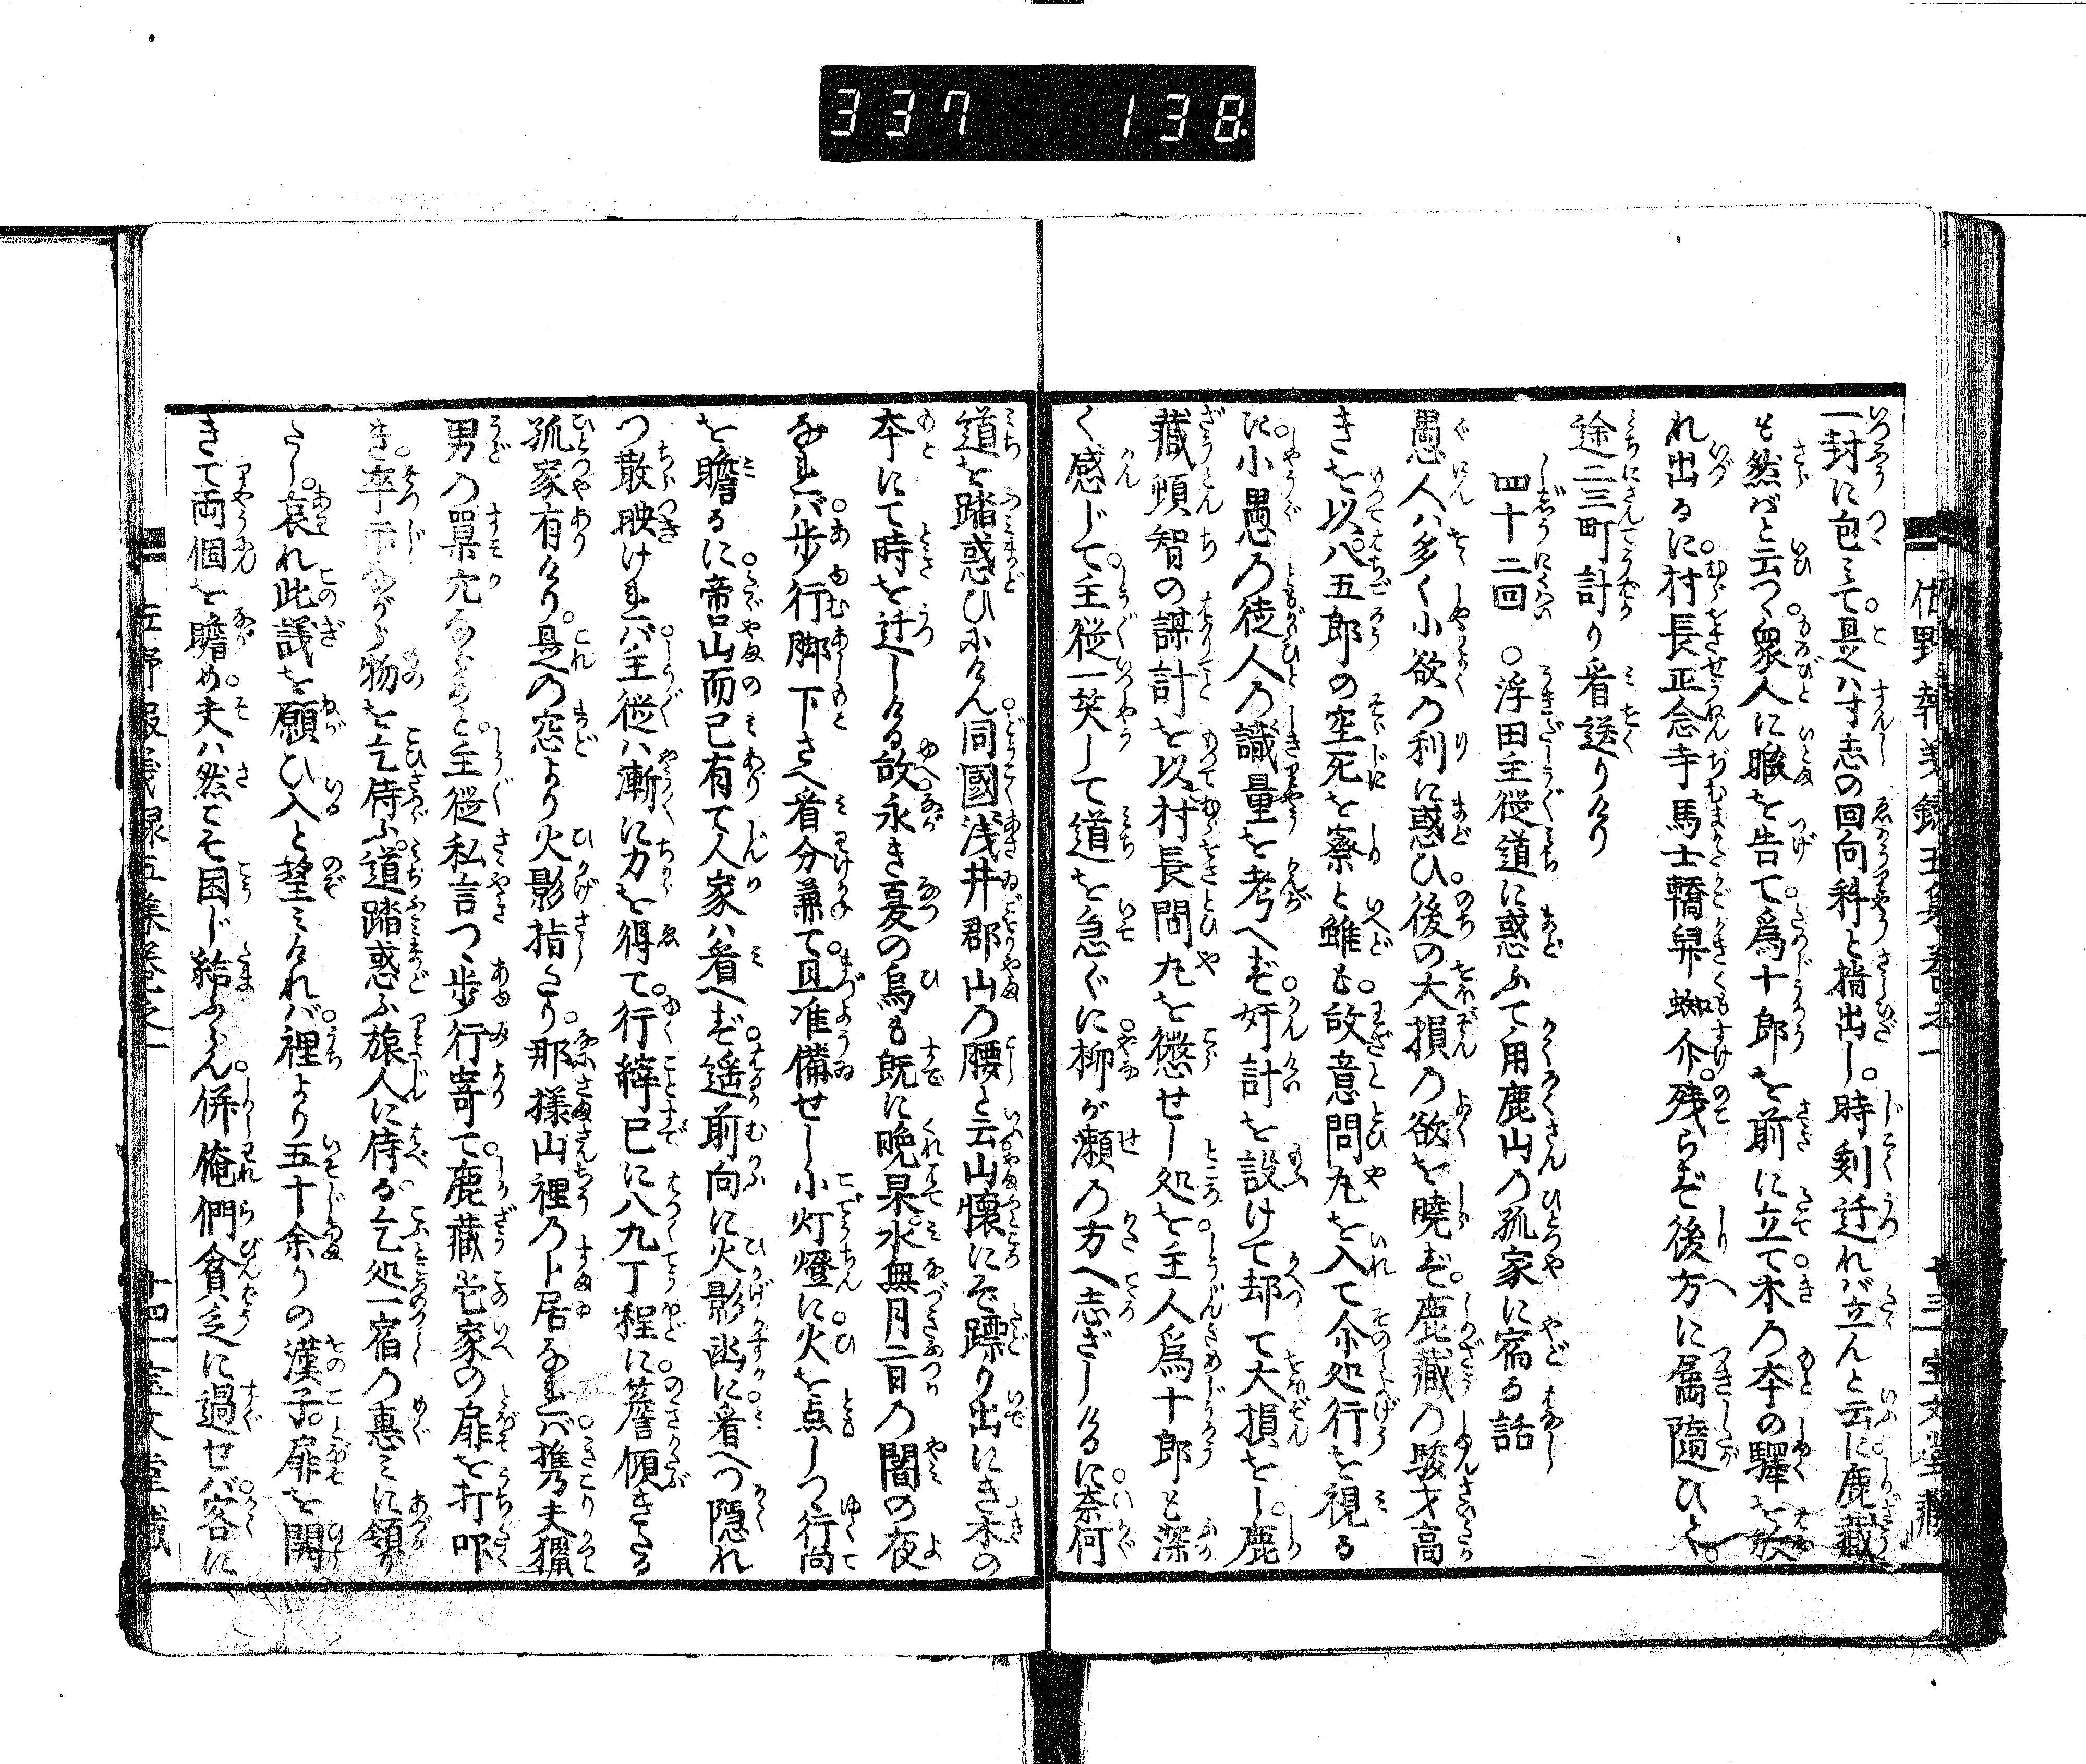 337 138
佐野報義録五集巻之一 十三 宝文堂蔵
一封に包みて是ハ寸志の回向料と指出し。時刻迁れバ立んと云に鹿蔵
も然バと云つゝ衆人に暇を告て。為十郎を前に立て木乃本の驛を放
れ出るに村長正念寺馬士轎舁蜘介残らず後方に属隨ひて。
途二三町計り看送りけり
四十二回 ○浮田主従道に惑ふて用鹿山乃孤家に宿る話
愚人ハ多く小欲乃利に惑ひ後の大損乃欲を曉ず。鹿蔵の駿才高
きを以八五郎の空死を察と雖も故意問丸を入て尒処行を視る
に小愚乃徒人の識量を考へず奸計を設けて却て大損をし鹿
蔵頓智の謀計を以村長問丸を懲せし処を主人為十郎も深
く感じて主従一笑して道を急ぐに柳が瀬乃方へ志ざしけるに奈何
道を踏惑ひけん同國浅井郡山乃腰と云山懐にぞ蹽り出にき木の
本にて時を迁しける故永き夏の烏も既に晩果水無月二日乃闇の夜
なれバ歩行脚下さへ看分兼て且准備せし小灯燈に火を点しつ行尚
を瞻るに啼口山而已有て人家ハ看へず遥前向に火影幽に看へつ隠れ
つ散映けれバ主従ハ漸に力を得て。行繂已に八九丁程に簷傾きたる
孤家有けり。是乃窓より火影指たり。那様山裡乃卜居なれバ携夫獵
男乃巣穴ならめと。主従私言つゝ歩行寄て。鹿蔵壱家の扉を打叩
き。卒示ながら物を乞侍ふ。道踏惑ふ旅人に侍る。乞処一宿乃惠みに領り
たし。哀れ此議を願ひ入と望みければ。裡より五十余りの漢子。扉を開
きて両個を瞻め。夫ハ然こそ困じ給ふらん。併俺們貧乏に過せバ客に
佐野報義録五集巻之一 十四 宝文堂蔵